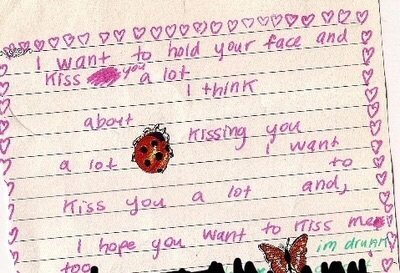 I want to hold your face and
Kiss you a lot
I think
about kissing you
a lot I want
to
kiss you a lot and,
I hope you want to kiss me
too
im drunk